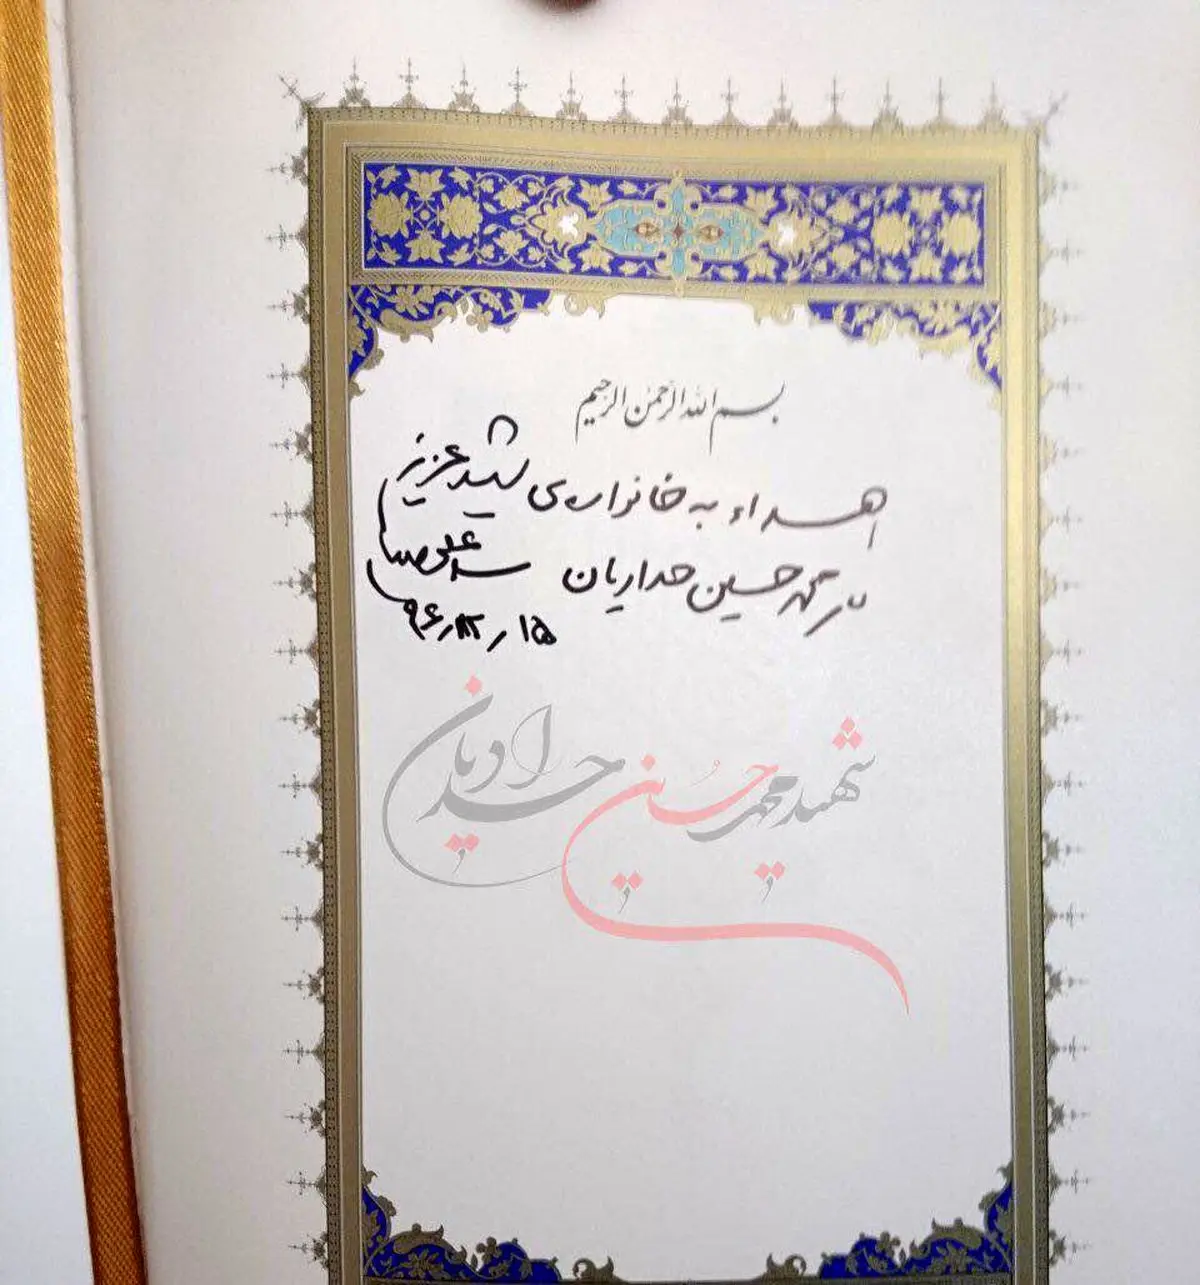 بسم الله الرحمن الرحیم
اهداء به خانواده‌ی شهید عزیز
محمد حسین حدادیان سید علی خامنه‌ای
۹۶/۱۲/۱۵
شهید محمد حسین حدادیان